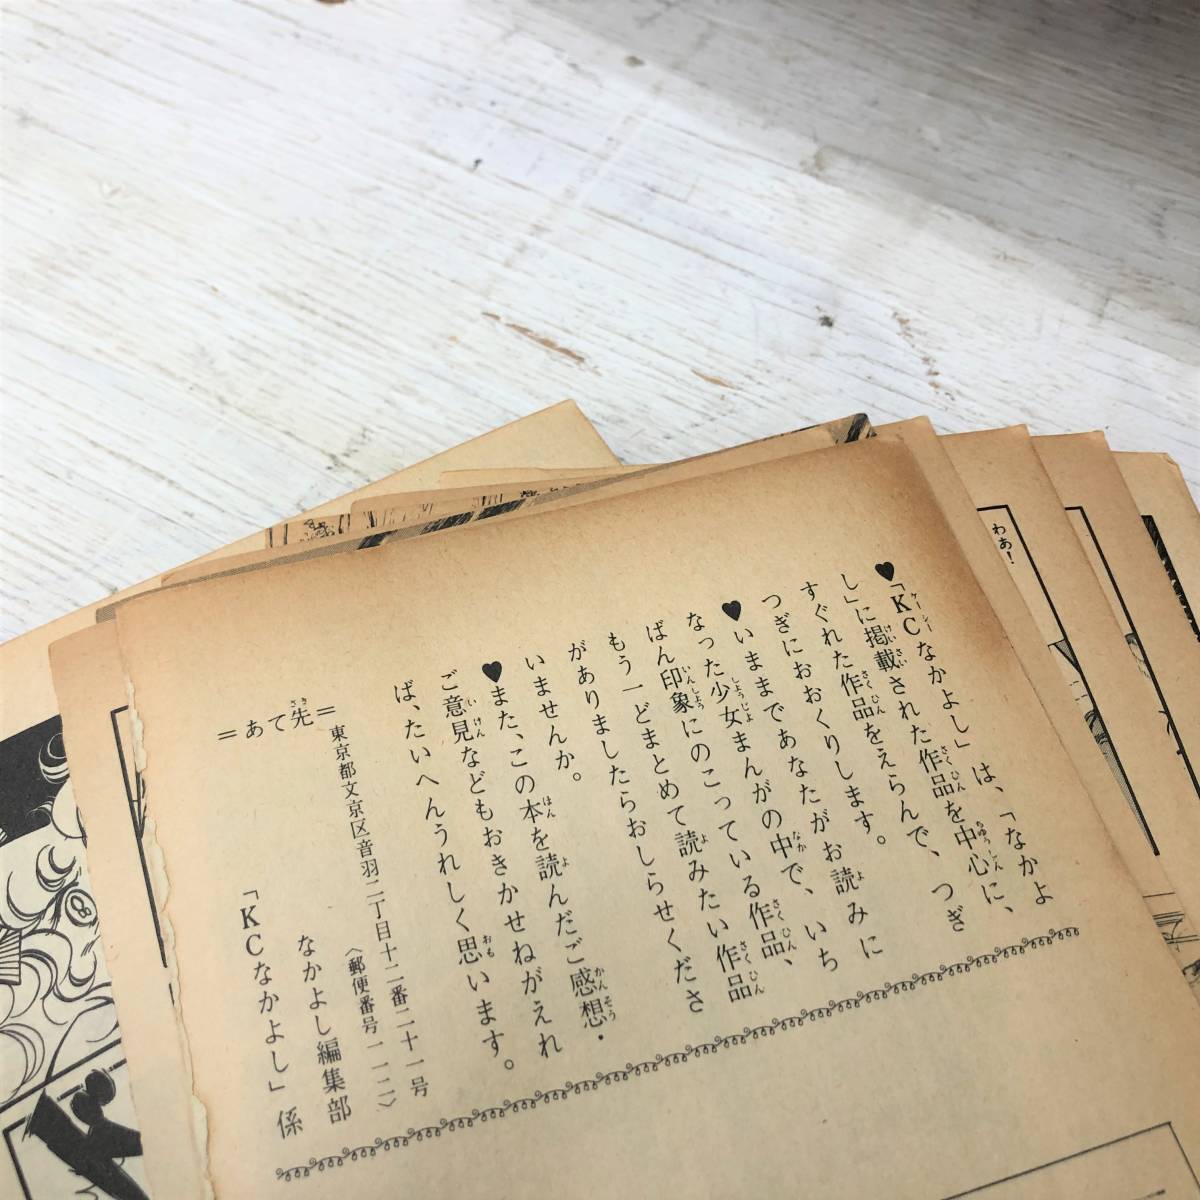 ♥「KCなかよし」は、「なかよ
し」に掲載された作品を中心に、
すぐれた作品をえらんで、つぎ
つぎにおおくりします。
♥いままであなたがお読みに
なった少女まんがの中で、いち
ばん印象にのこっている作品、
もう一どまとめて読みたい作品
がありましたらおしらせくださ
いませんか。
♥また、この本を読んだご感想・
ご意見などもおきかせねがえれ
ば、たいへんうれしく思います。
＝あて先＝
東京都文京区音羽二丁目十二番二十一号
〈郵便番号一一二〉
なかよし編集部
「KCなかよし」係
わあ!